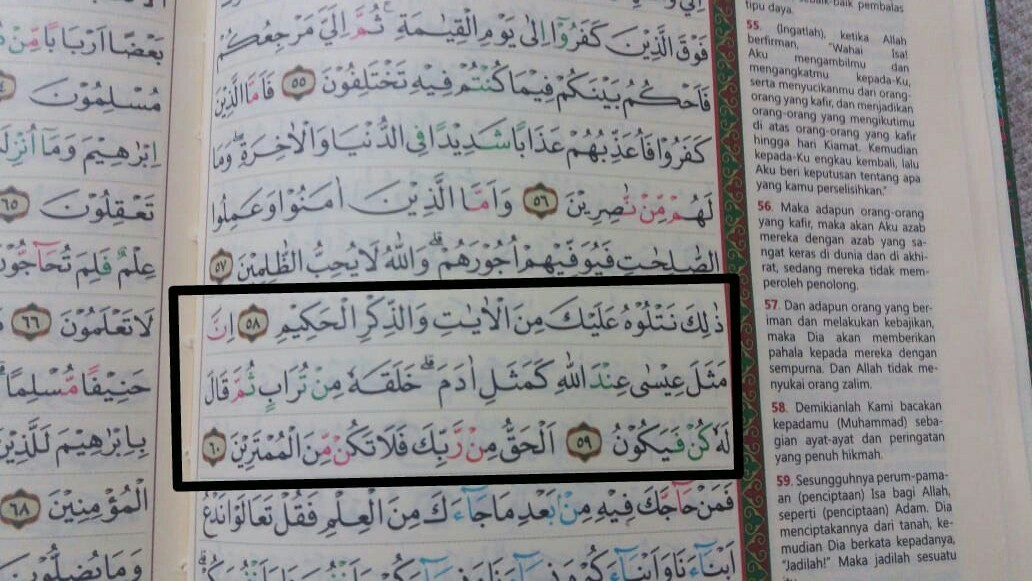 فَوْقَ الَّذِيْنَ كَفَرُوْٓا اِلٰى يَوْمِ الْقِيٰمَةِ ۚ ثُمَّ اِلَيَّ مَرْجِعُكُمْ
فَاَحْكُمُ بَيْنَكُمْ فِيْمَا كُنْتُمْ فِيْهِ تَخْتَلِفُوْنَ ٥٥ فَاَمَّا الَّذِيْنَ
كَفَرُوْا فَاُعَذِّبُهُمْ عَذَابًا شَدِيْدًا فِى الدُّنْيَا وَالْاٰخِرَةِ ۖ وَمَا
لَهُمْ مِّنْ نّٰصِرِيْنَ ٥٦ وَاَمَّا الَّذِيْنَ اٰمَنُوْا وَعَمِلُوا
الصّٰلِحٰتِ فَيُوَفِّيْهِمْ اُجُوْرَهُمْ ۗ وَاللّٰهُ لَا يُحِبُّ الظّٰلِمِيْنَ ٥٧
ذٰلِكَ نَتْلُوْهُ عَلَيْكَ مِنَ الْاٰيٰتِ وَالذِّكْرِ الْحَكِيْمِ ٥٨ اِنَّ
مَثَلَ عِيْسٰى عِنْدَ اللّٰهِ كَمَثَلِ اٰدَمَ ۗ خَلَقَهٗ مِنْ تُرَابٍ ثُمَّ قَالَ
لَهٗ كُنْ فَيَكُوْنُ ٥٩ اَلْحَقُّ مِنْ رَّبِّكَ فَلَا تَكُنْ مِّنَ الْمُمْتَرِيْنَ ٦٠
فَمَنْ حَاۤجَّكَ فِيْهِ مِنْۢ بَعْدِ مَا جَاۤءَكَ مِنَ الْعِلْمِ فَقُلْ تَعَالَوْا نَدْعُ
اَبْنَاۤءَنَا وَاَبْنَاۤءَكُمْ
بَعْضًا اَرْبَابًا مِّنْ
مُسْلِمُوْنَ
اِبْرٰهِيْمَ وَمَآ اُنْزِلَ
تَعْقِلُوْنَ ٦٥
عِلْمٌ فَلِمَ تُحَاۤجُّوْنَ
لَا تَعْلَمُوْنَ ٦٦
حَنِيْفًا مُّسْلِمًا
بِاِبْرٰهِيْمَ لَلَّذِيْنَ
الْمُؤْمِنِيْنَ ٦٨
وَمَا يُضِلُّوْنَ
baik pembalas
tipu daya.
55. (Ingatlah), ketika Allah
berfirman, "Wahai Isa!
Aku mengambilmu dan
mengangkatmu kepada-Ku,
serta menyucikanmu dari orang-
orang yang kafir, dan menjadikan
orang-orang yang mengikutimu
di atas orang-orang yang kafir
hingga hari Kiamat. Kemudian
kepada-Ku engkau kembali, lalu
Aku beri keputusan tentang apa
yang kamu perselisihkan."
56. Maka adapun orang-orang
yang kafir, maka akan Aku azab
mereka dengan azab yang sa-
ngat keras di dunia dan di akhi-
rat, sedang mereka tidak mem-
peroleh penolong.
57. Dan adapun orang yang ber-
iman dan melakukan kebajikan,
maka Dia akan memberikan
pahala kepada mereka dengan
sempurna. Dan Allah tidak me-
nyukai orang zalim.
58. Demikianlah Kami bacakan
kepadamu (Muhammad) seba-
gian ayat-ayat dan peringatan
yang penuh hikmah.
59. Sesungguhnya perum-pama-
an (penciptaan) Isa bagi Allah,
seperti (penciptaan) Adam. Dia
menciptakannya dari tanah, ke-
mudian Dia berkata kepadanya,
"Jadilah!" Maka jadilah sesuatu